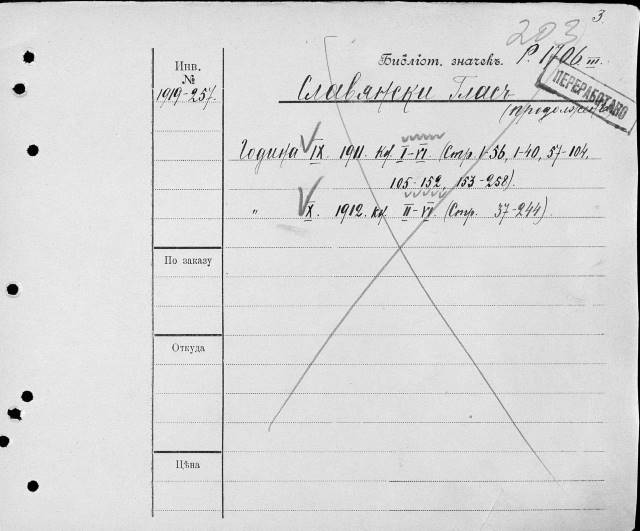 203 3.
Инв.
№
1919-257.
Библіот. значекъ. Р. 1706 III.
ПЕРЕРАБОТАНО
Славянски Гласъ
(продолжен.
Година IX. 1911. Кн. I-VI. (Стр. 1-56, 1-40, 57-104.
105-152, 153-258).
" X. 1912. Кн. II-VI. (Стр. 37-244).
По заказу
Откуда
Цѣна